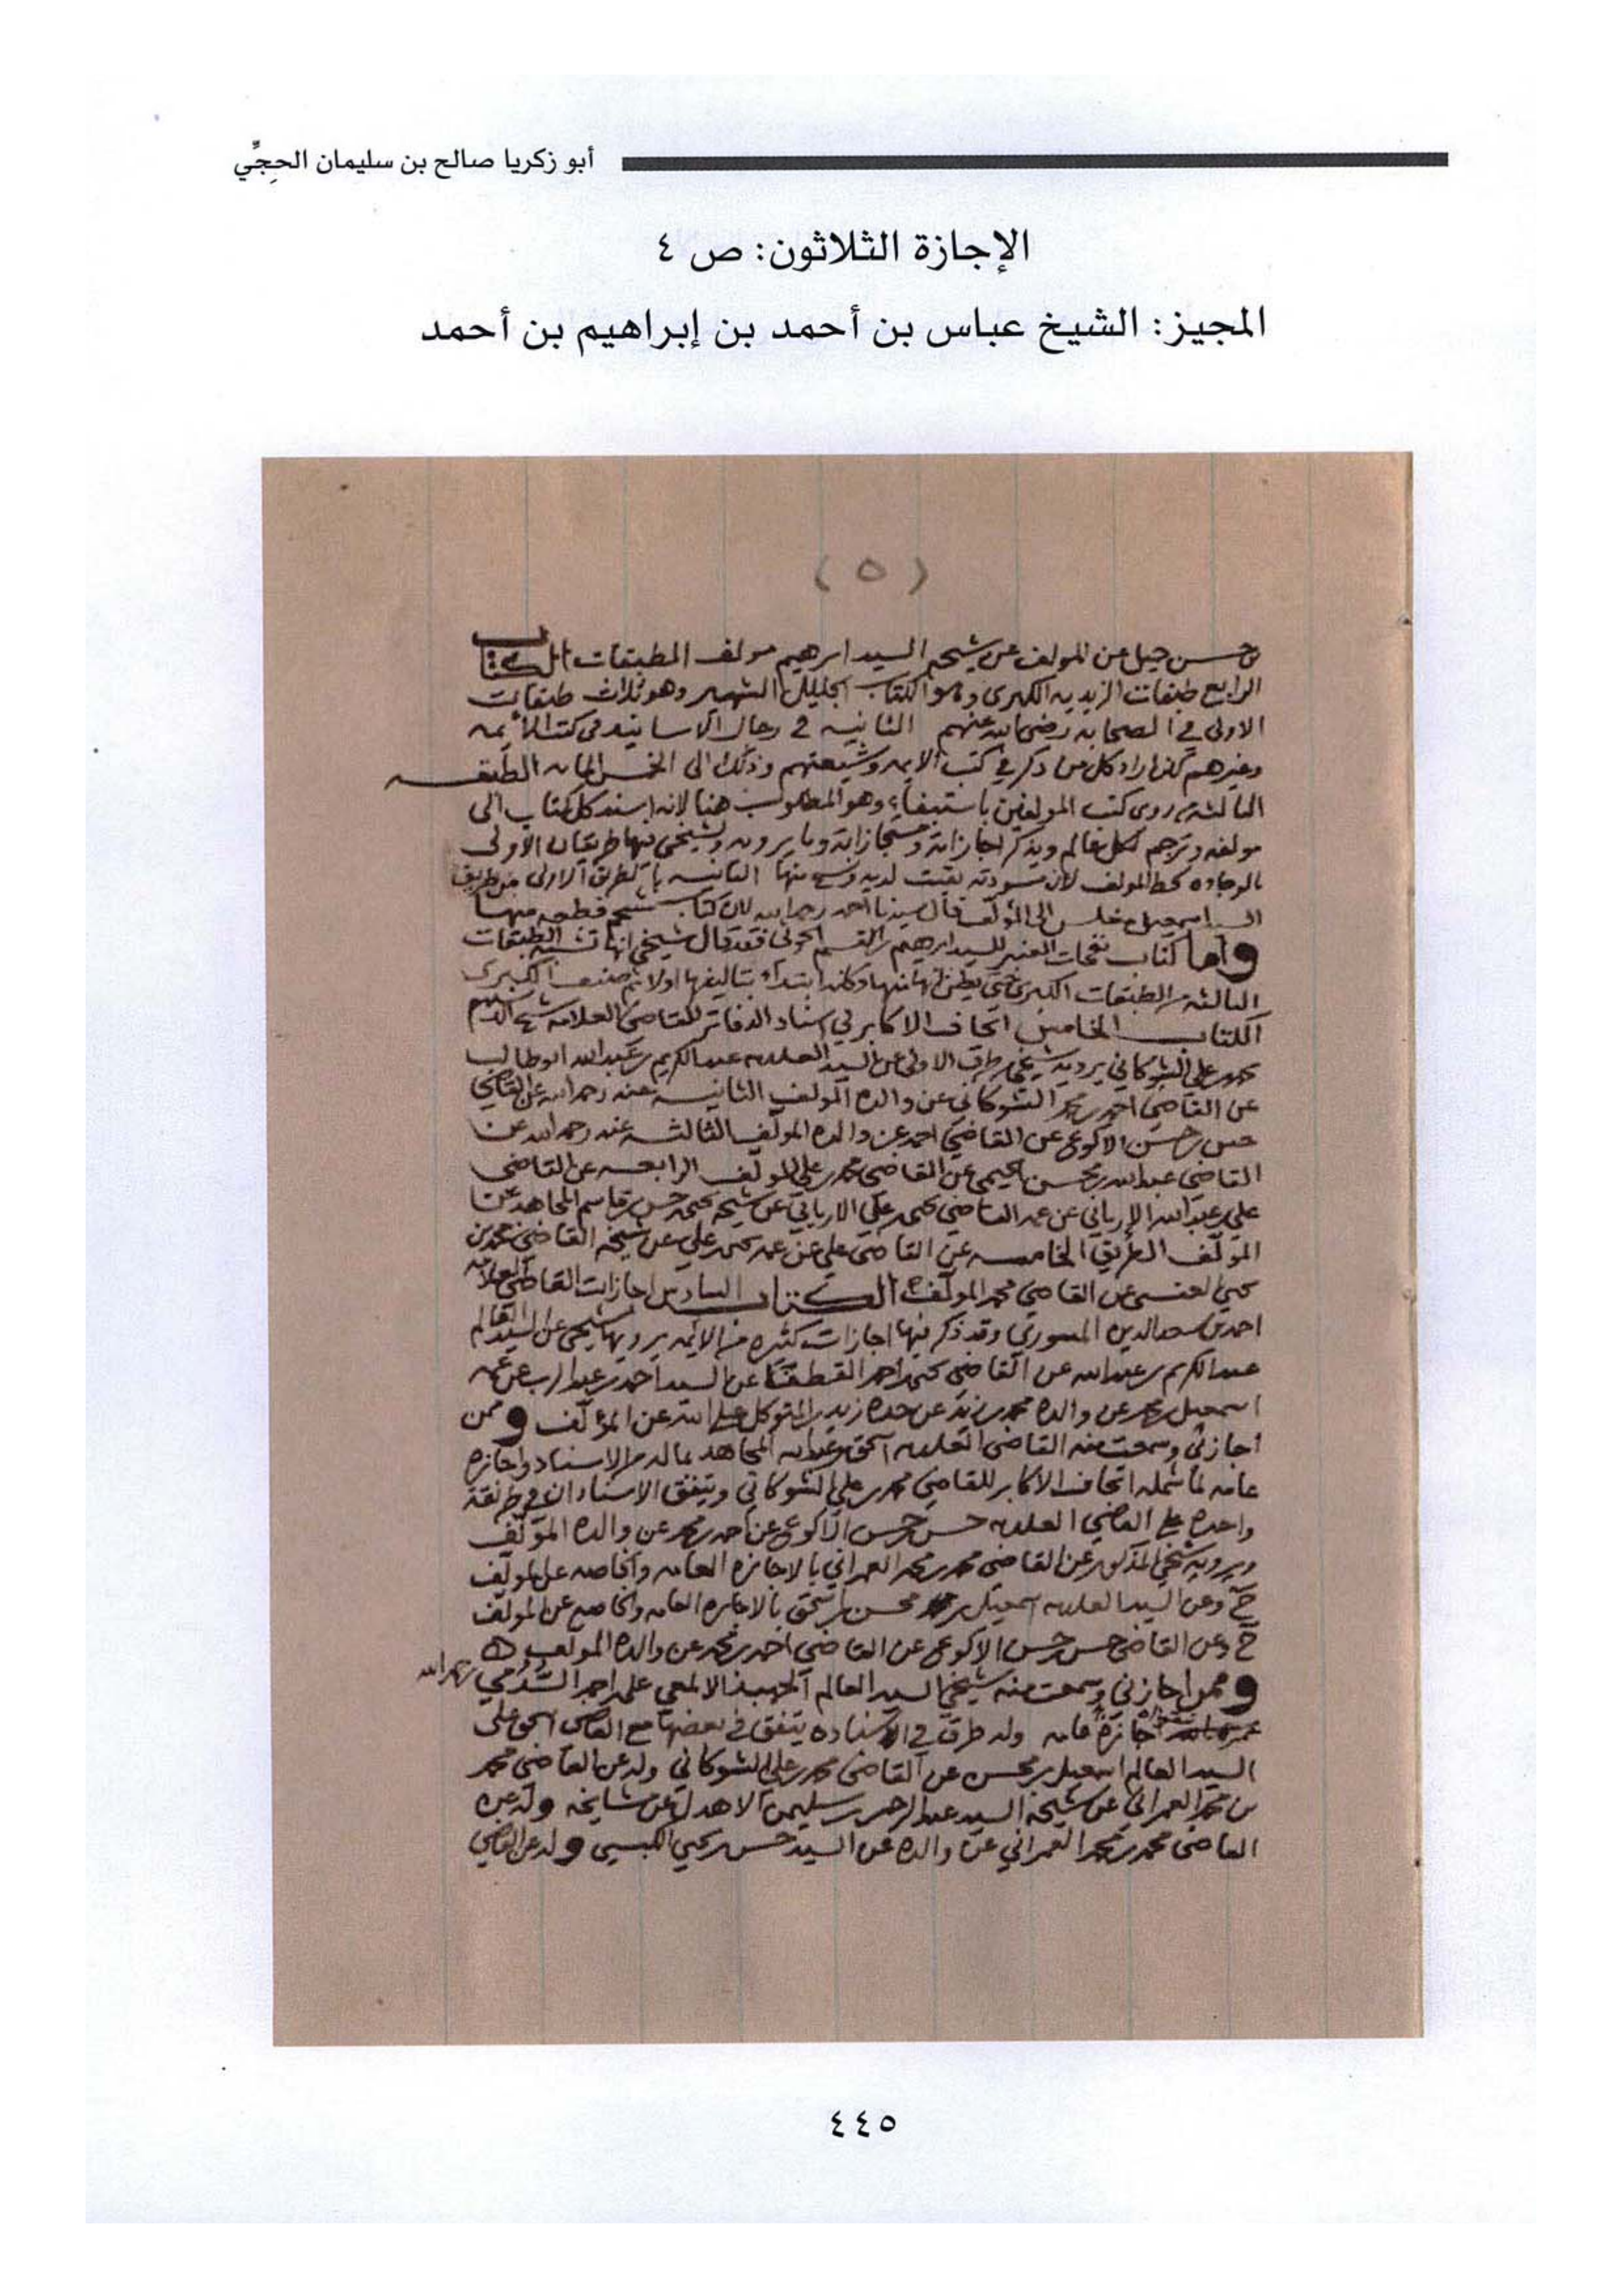 أبو زكريا صالح بن سليمان الحجِّي
الإجازة الثلاثون: ص ٤
المجيز: الشيخ عباس بن أحمد بن إبراهيم بن أحمد
(٥)
عن المولف عن شيخه السيد ابرهيم مولف الطبقات الكتاب
الرابع طبقات الزيديه الكبرى وهو الكتاب الجليل الشهير وهو ثلاث طبقات
الاولى في الصحابه رضي الله عنهم الثانيه في رجال الاسانيد في كتب الأيمه
وغيرهم كل من ذكر في كتب الايمه وشيعتهم وذلك الى الخمس المايه الطبقه
الثالثه روى كتب المولفين باستيفاء وهو المطلوب هنا لانه اسند كل كتاب الى
مولفه وترجم لكل عالم ويذكر اجازاته ومستجازاته وما يرويه ولشيخي فيها طريقان الاولى
بالوجاده بخط المولف لان مسودته بقيت لديه منها الثانيه بالطريق الاولى من طريق
السيد اسمعيل الى المولف قال سيدنا احمد رحمه الله لان كتاب
واما كتاب نفحات العنبر للسيد ابرهيم القسم الحوثي فقد قال شيخي انها تشبه الطبقات
الثالثه الطبقات الكبرى حتى يظن انها منها وكانه ابتداء بتاليفها اولا ثم صنف الكبرى
الكتاب الخامس اتحاف الاكابر في اسناد الدفاتر للقاضي العلامه شيخ الاسلام
محمد بن علي الشوكاني يرويه شيخي من طرق الاولى عن السيد العلامه عبد الكريم بن عبد الله ابوطالب
عن القاضي احمد بن محمد الشوكاني عن والده المولف الثانيه عنه رحمه الله عن القاضي
حسن بن حسن الاكوع عن القاضي احمد عن والده المولف الثالثه عنه رحمه الله عن
القاضي عبد الله بن محسن الحيمي عن القاضي محمد بن علي المولف الرابعه عن القاضي
علي بن عبد الله الإرياني عن عمه القاضي يحيى بن علي الارياني عن شيخه يحيى بن حسن بن قاسم المجاهد عن
المولف الطريق الخامسه عن القاضي علي عن عمه يحيى بن علي عن شيخه القاضي محمد بن
يحيى العنسي عن القاضي محمد المولف الكتاب السادس اجازات القاضي العلامه
احمد بن سعد الدين المسوري وقد ذكر فيها اجازات كثيره من الايمه يرويها شيخي عن السيد العالم
عبد الكريم بن عبد الله عن القاضي يحيى احمد القطفا عن السيد احمد بن عبد الرب عن عمه
اسمعيل بن محمد عن والده محمد بن زيد عن جده زيد بن المتوكل على الله عن المولف وممن
اجازني وسمعت منه القاضي العلامه اسحق بن عبد الله المجاهد بما له من الاسناد واجازه
عامه لما شمله اتحاف الاكابر للقاضي محمد بن علي الشوكاني ويتفق الاسنادان في طريقة
واحده على القاضي العلامه حسن بن حسن الاكوع عن احمد بن محمد عن والده المولف
ويرويه شيخي المذكور عن القاضي محمد بن محمد العمراني بالاجازه العامه والخاصه عن المولف
ح وعن السيد العلامه اسمعيل بن محسن بن اسحق بالاجازه العامه والخاصه عن المولف
ح وعن القاضي حسن بن حسن الاكوع عن القاضي احمد بن محمد عن والده المولف
وممن اجازني وسمعت منه شيخي السيد العالم الجهبذ الالمعي علي بن احمد السدمي رحمه الله
اجازة عامه وله طرق في الاسناد يتفق في بعضها مع القاضي اسحق على
السيد العالم اسمعيل بن محسن عن القاضي محمد بن علي الشوكاني وله عن القاضي محمد
بن محمد العمراني عن شيخه السيد عبد الرحمن بن سليمن الاهدل عن مشايخه وله عن
القاضي محمد بن محمد العمراني عن والده عن السيد حسن بن يحيى الكبسي وله عن القاضي
٤٤٥